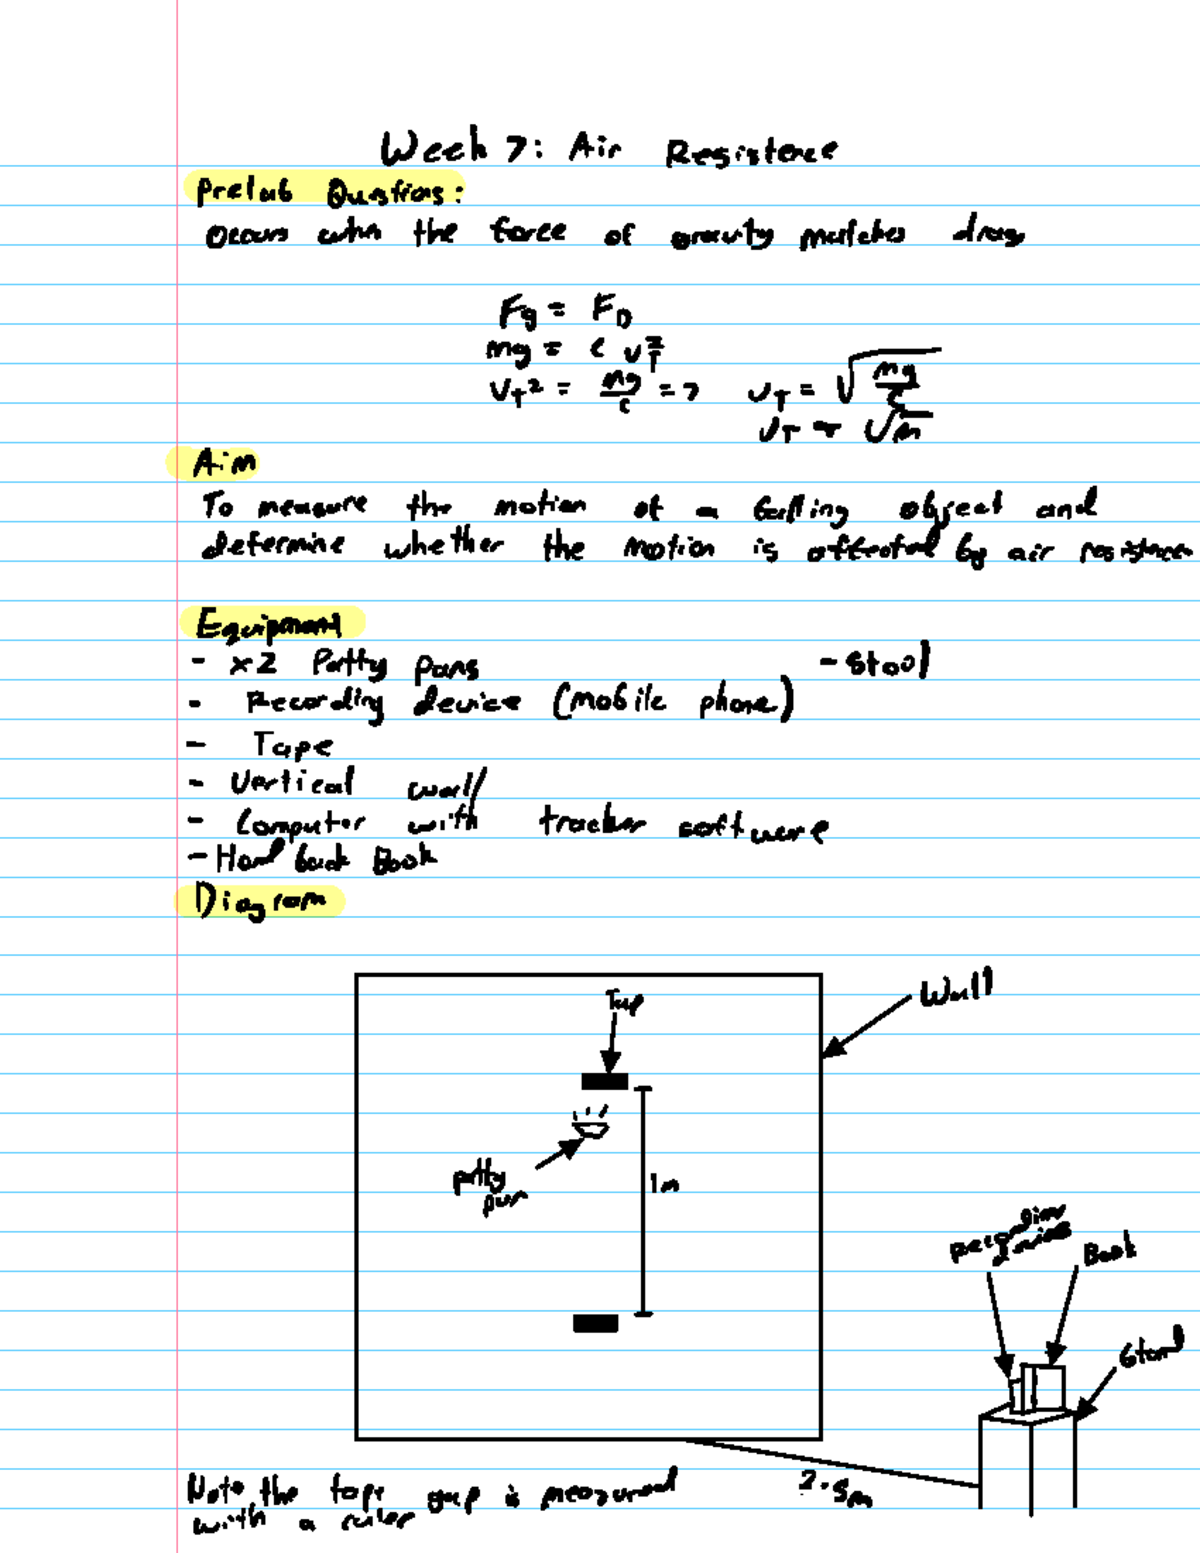 Week 7: Air Resistence
Prelab Questions:
Occurs when the force of gravity matches drag
Fg = FD
mg = c vT²
vT² = mg/c => vT = √(mg/c)
vT √m
Aim
To measure the motion of a falling object and
determine whether the motion is affected by air resistence
Equipment
- x2 Patty pans - stool
- Recording device (mobile phone)
- Tape
- Vertical wall
- Computer with tracker software
- Hard back Book
Diagram
Wall
Tape
patty
pan
1m
Recording
device
Book
Stand
2.5m
Note the tape gap is measured
with a ruler